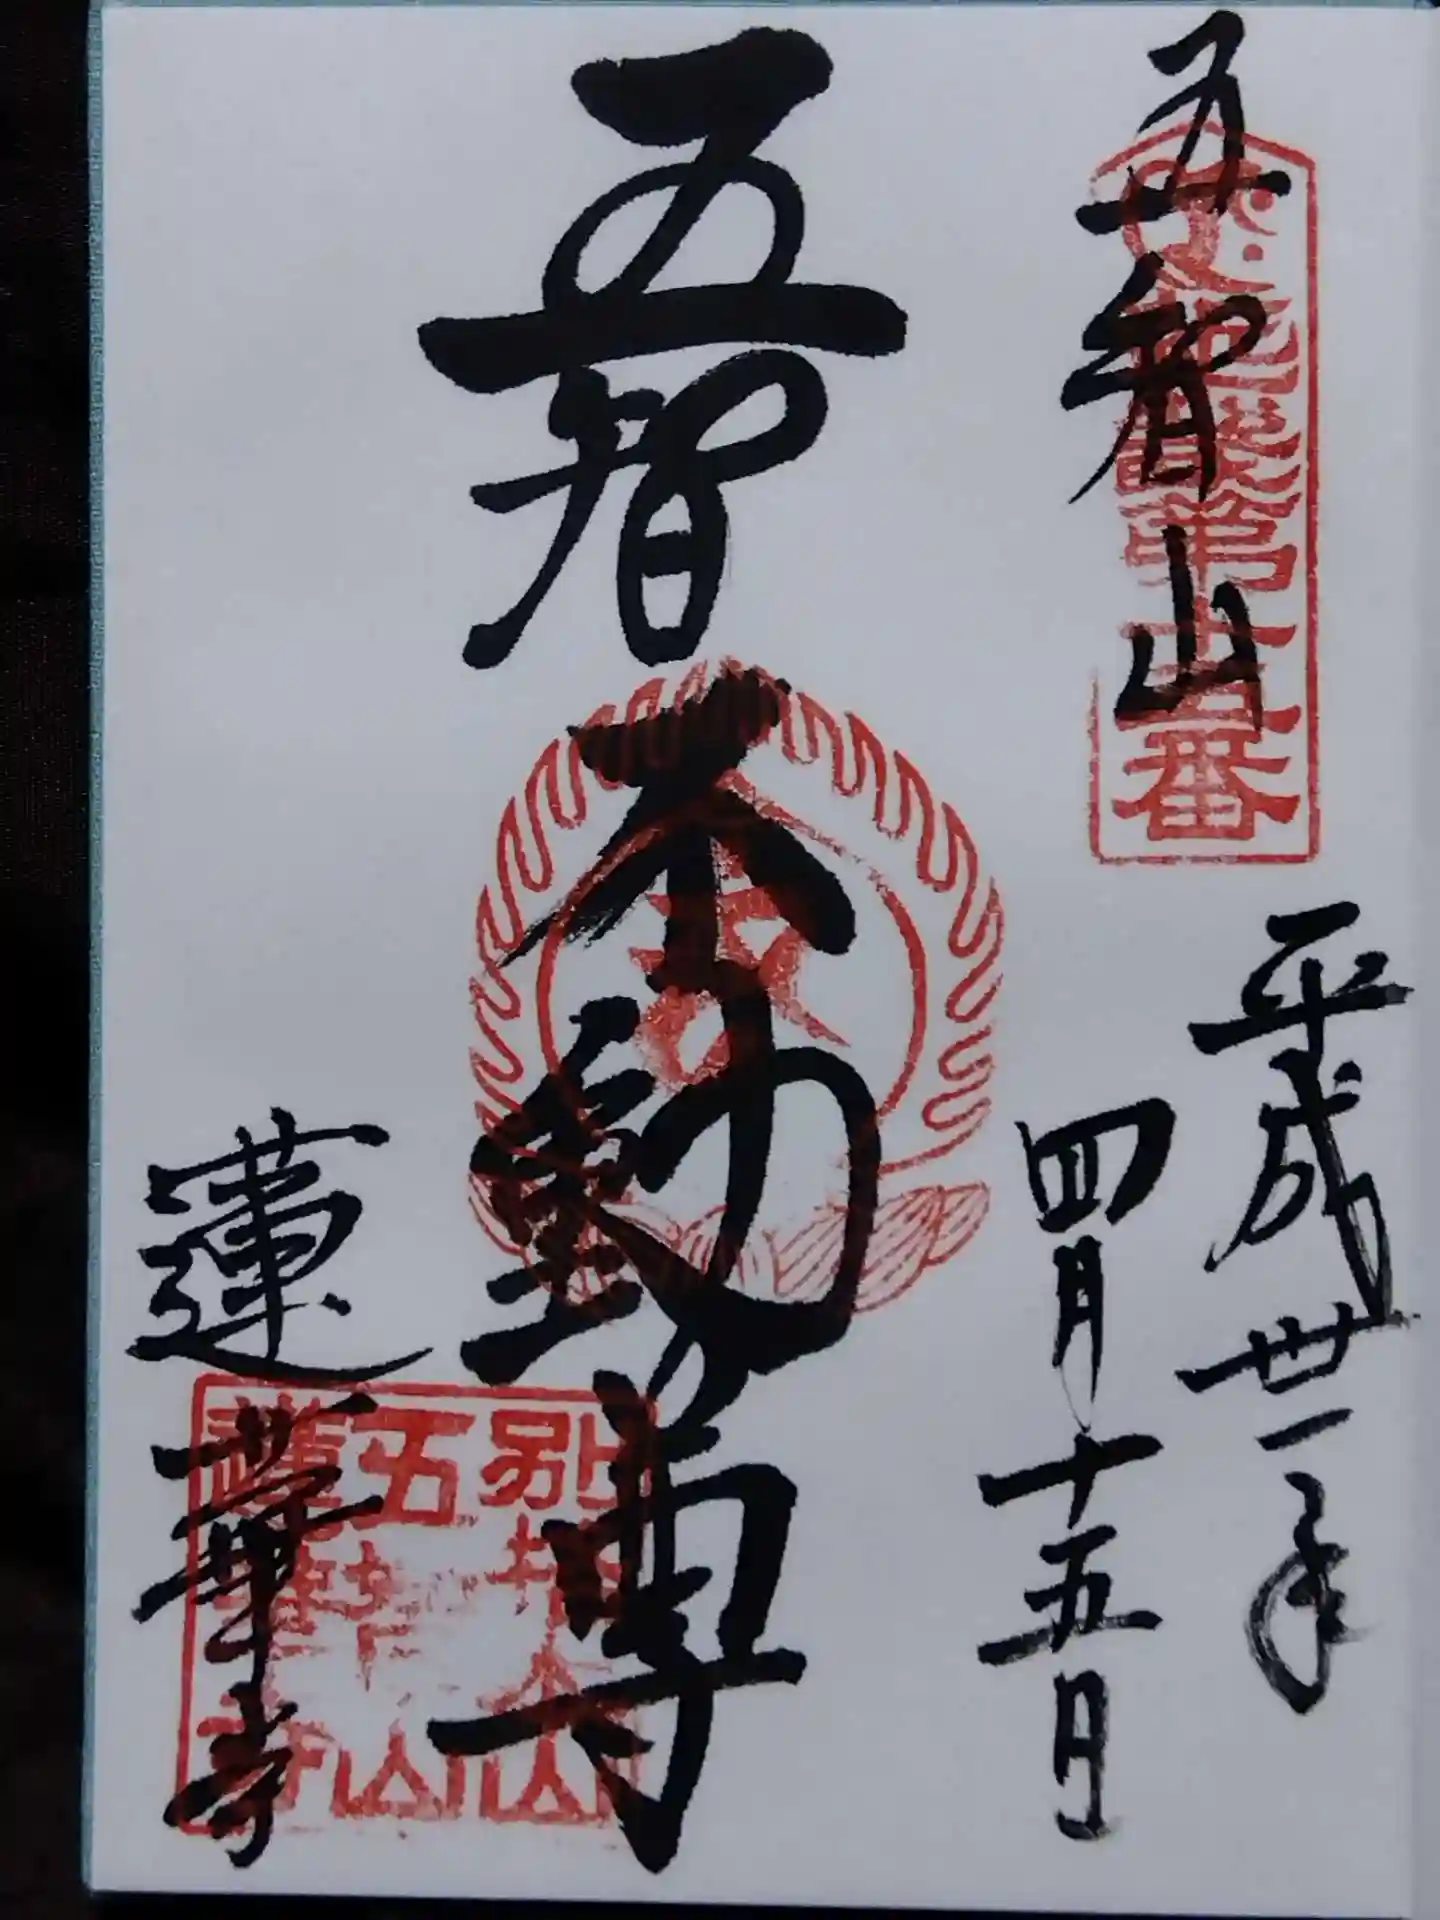 五智山
平成卅一年
四月十五日
五智不動尊
蓮華寺
第十五番
別格本山
五智山
蓮華寺